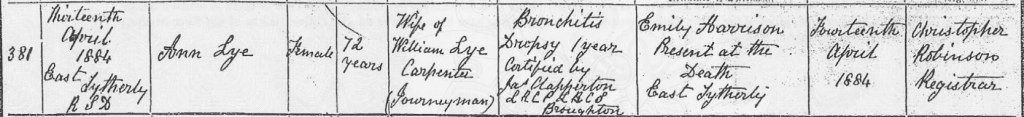 381
Thirteenth
April
1884
East Tytherly
R S D
Ann Lye
Female
72
years
Wife of
William Lye
Carpenter
(Journeyman)
Bronchitis
Dropsy 1 year
Certified by
Jas Clapperton
L R C P L R C S
Broughton
Emily Harrison
Present at the
Death
East Tytherly
Fourteenth
April
1884
Christopher
Robinson
Registrar